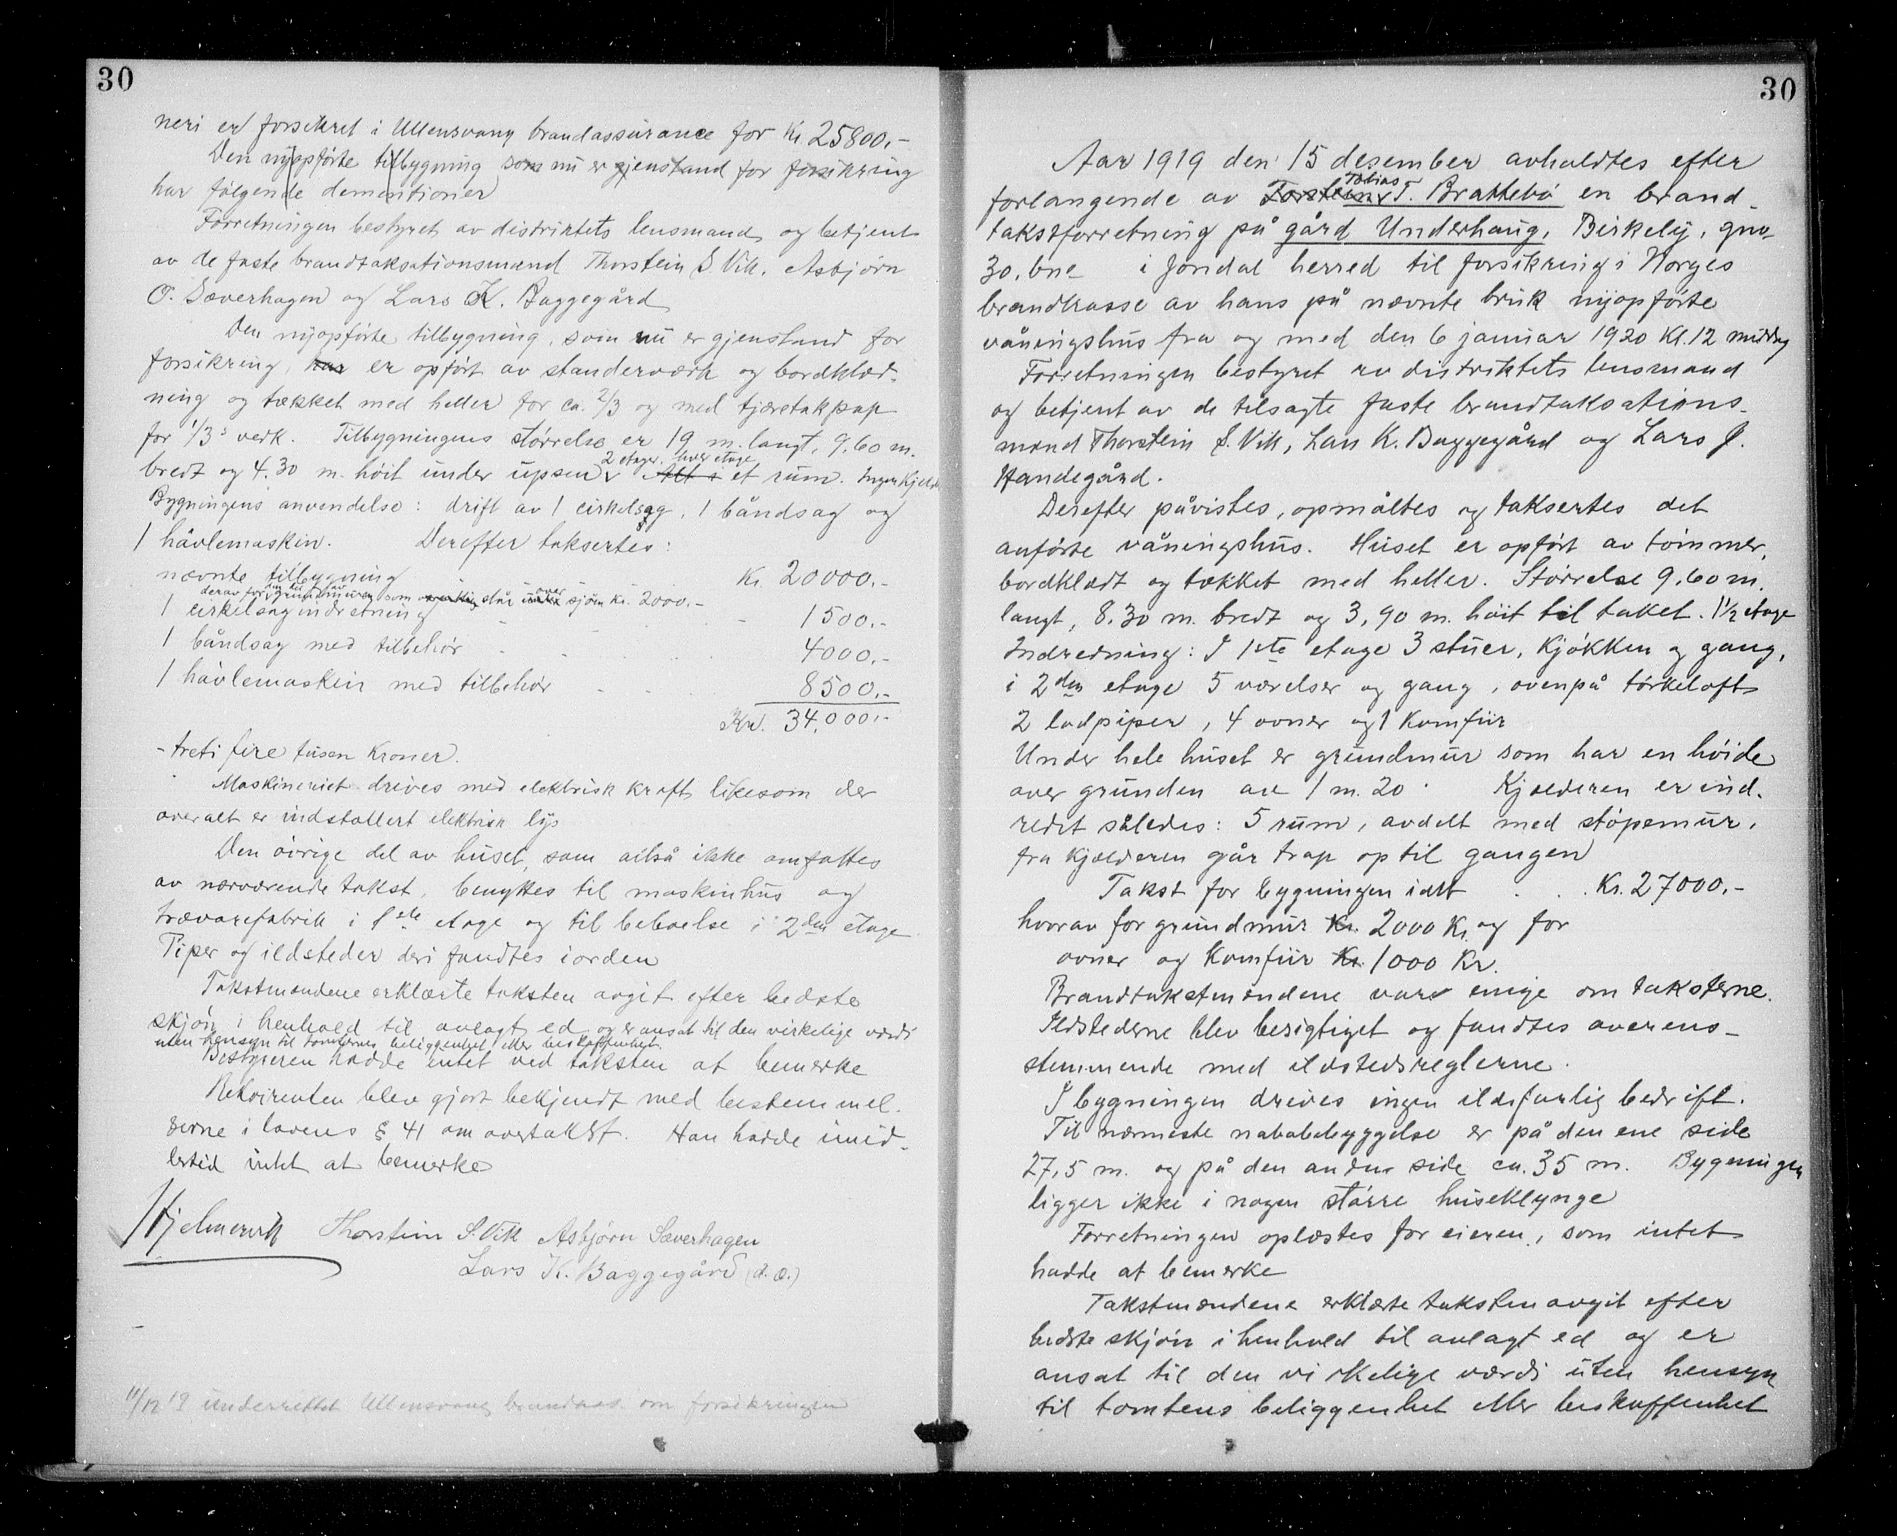 30
neri er forsikret i Ullensvang brandassurance for Kr. 25800,-
Den nyopførte tilbygning som nu er gjenstand for forsikring
har følgende dementioner
Forretningen bestyret av distriktets lensmand og betjent
av de faste brandtaksationsmænd Thorstein S. Vik, Asbjørn
O. Sæverhagen og Lars K. Baggegård
Den nyopførte tilbygning, som nu er gjenstand for
forsikring, har er opført av standerværk og bordklæd-
ning og tækket med heller for ca. 2/3 og med tjæretakpap
for 1/3 s verk. Tilbygningens størrelse er 19 m. langt, 9,60 m.
bredt og 4.30 m. høit under upsen, 2 etager, hver etage Alt i et rum. Ingen kjeld
Bygningens anvendelse: drift av 1 cirkelsag, 1 båndsag og
1 høvlemaskin. Derefter taksertes:
nævnte tilbygning Kr. 20000,-
derav for den del av grundmuren som står over sjøen kr. 2000,-
1 cirkelsagindretning - 1500,-
1 båndsag med tilbehør 4000,-
1 høvlemaskin med tilbehør 8500,-
Kr. 34,000,-
- treti fire tusen kroner.
Maskineriet drives med elektrisk kraft likesom der
overalt er indstallert elektrisk lys
Den øvrige del av huset, som altså ikke omfattes
av nærværende takst, benyttes til maskinhus og
trævarefabrik i 1ste etage og til beboelse i 2den etage
Piper og ildsteder deri fandtes iorden
Takstmændene erklærte taksten avgit efter bedste
skjøn i henhold til avlagt ed og er ansat til den virkelige værdi
uten hensyn til tomternes beliggenhet eller beskaffenhet.
Bestyreren hadde intet ved taksten at bemerke
Rekvirenten blev gjort bekjendt med bestemmel-
serne i lovens § 41 om overtakst. Han hadde imid-
lertid intet at bemerke
Hjelmevik Thorstein S. Vik Asbjørn Sæverhagen
Lars K. Baggegård (d. æ.)
11/12 19 underrettet Ullensvang brandas. om forsikringen
30
Aar 1919 den 15 desember avholdtes efter
forlangende av Torstein Tobias T. Brattebø en brand-
takstforretning på gård Underhaug, Birkely, gno
30, bno i Jondal herred til forsikring i Norges
brandkasse av hans på nævnte bruk nyopførte
våningshus fra og med den 6 januar 1920 kl. 12 middag
Forretningen bestyret av distriktets lensmand
og betjent av de tilsagte faste brandtaksations-
mænd Thorstein S. Vik, Lars K. Baggegård og Lars J.
Handegård.
Derefter påvistes, opmåltes og taksertes det
anførte våningshus. Huset er opført av tømmer,
bordklædt og tækket med heller. Størrelse 9,60 m.
langt, 8,30 m. bredt og 3,90 m. høit til taket. 1 1/2 etage
Indredning: I 1ste etage 3 stuer, kjøkken og gang,
i 2den etage 5 værelser og gang, ovenpå tørkeloft
2 lodpiper, 4 ovner og 1 komfür
Under hele huset er grundmur som har en høide
over grunden av 1 m. 20. Kjælderen er ind-
redet således: 5 rum, avdelt med støpemur.
fra kjælderen går trap op til gangen
Takst for bygningen ialt . . . Kr. 27000,-
hvorav for grundmur Kr. 2000 Kr. og for
ovner og komfür Kr. 1000 Kr.
Brandtakstmændene var enige om taksterne.
Ildstederne blev besigtiget og fandtes overens-
stemmende med ildstedsreglerne.
I bygningen drives ingen ildsfarlig bedrift.
Til nærmeste nabobebyggelse er på den ene side
27,5 m. og på den anden side ca. 35 m. Bygningen
ligger ikke i nogen større huseklynge
Forretningen oplæstes for eieren, som intet
hadde at bemerke
Takstmændene erklærte taksten avgit efter
bedste skjøn i henhold til avlagt ed og er
ansat til den virkelige værdi uten hensyn
til tomtens beliggenhet eller beskaffenhet